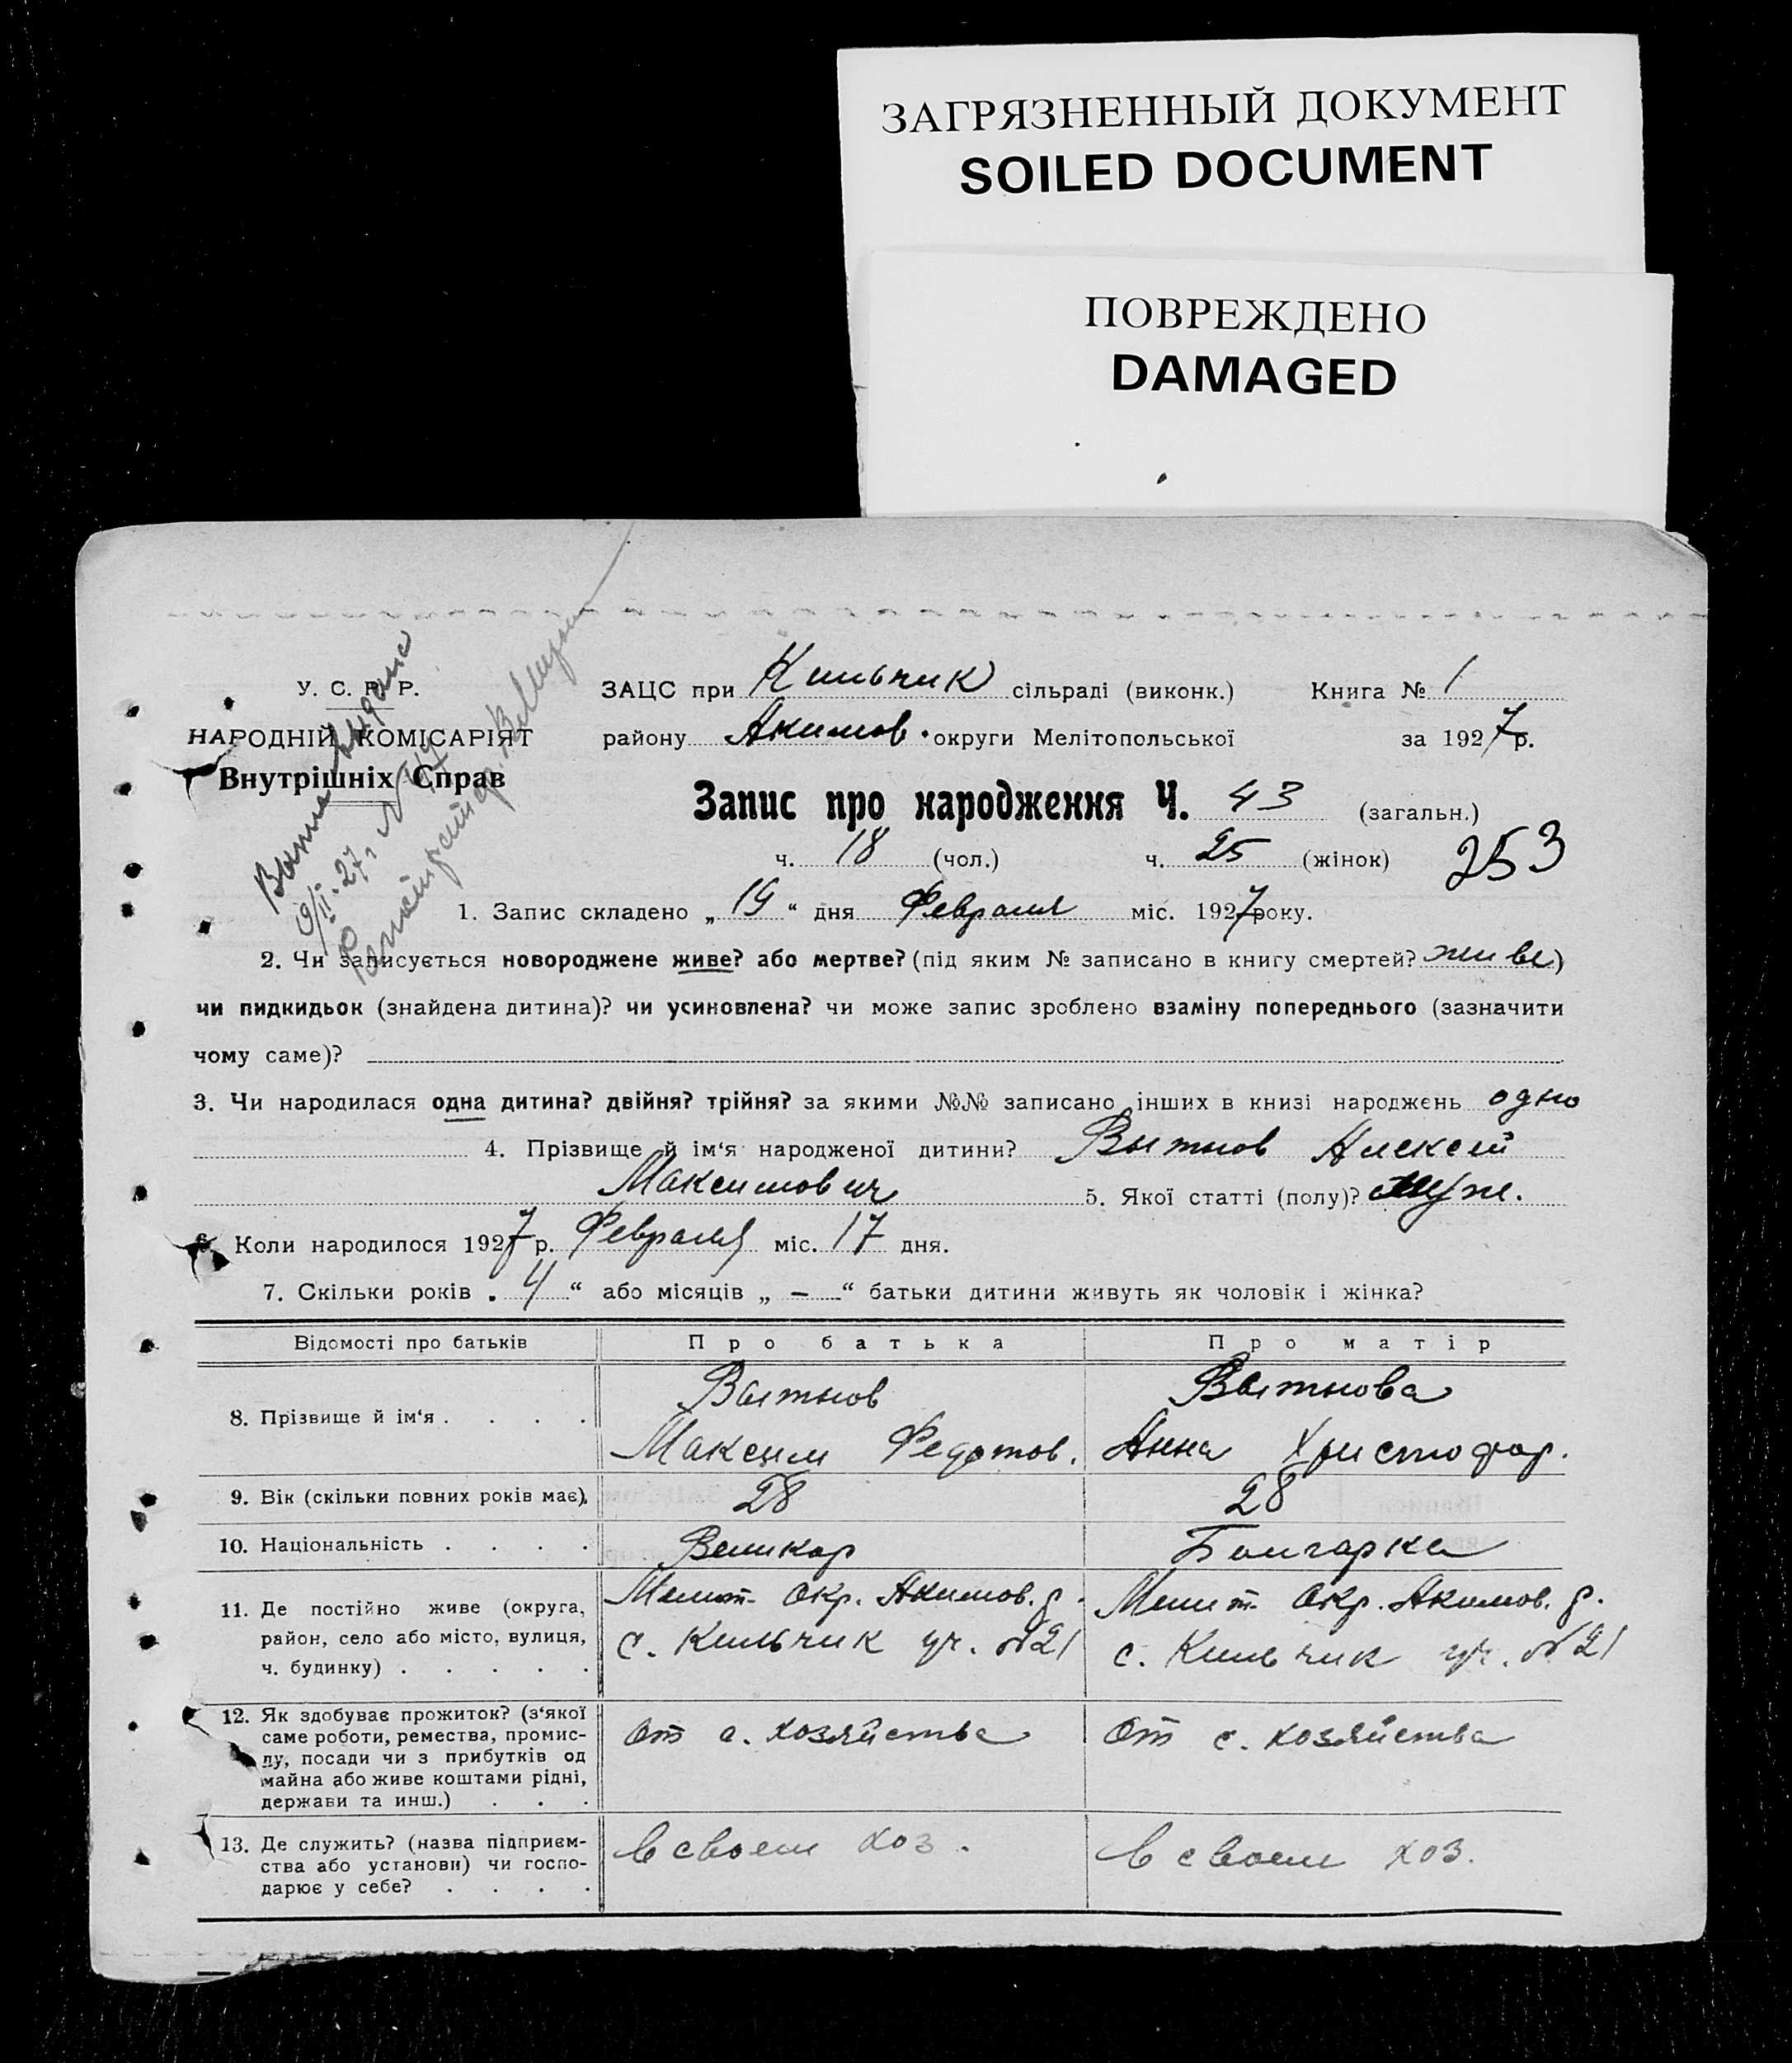 ЗАГРЯЗНЕННЫЙ ДОКУМЕНТ
SOILED DOCUMENT
ПОВРЕЖДЕНО
DAMAGED
У. С. Р. Р.
НАРОДНІЙ КОМІСАРІЯТ
Внутрішніх Справ
Выпис выдана
9/II-27 г. №
ЗАЦС при Кильчик сільраді (виконк.) Книга № 1
району Акимов. округи Мелітопольської за 1927 р.
Запис про народження Ч. 43 (загальн.)
ч. 18 (чол.) ч. 25 (жінок) 253
1. Запис складено „ 19 “ дня Февраля міс. 1927 року.
2. Чи записується новороджене живе? або мертве? (під яким № записано в книгу смертей? живе)
чи пидкидьок (знайдена дитина)? чи усиновлена? чи може запис зроблено взаміну попереднього (зазначити
чому саме)?
3. Чи народилася одна дитина? двійня? трійня? за якими №№ записано інших в книзі народжень одно
4. Прізвище й ім‘я народженої дитини? Вытнов Алексей
Максимович 5. Якої статті (полу)? Муж.
6. Коли народилося 1927 р. Февраля міс. 17 дня.
7. Скільки років „ 4 “ або місяців „ — “ батьки дитини живуть як чоловік і жінка?
Відомості про батьків Про батька Про матір
8. Прізвище й ім‘я . . . . Вытнов Вытнова
Максим Федотов. Анна Христофор.
9. Вік (скільки повних років має). 28 28
10. Національність . . . . Великор Болгарка
11. Де постійно живе (округа, Мелит. окр. Акимов. р. Мелит. окр. Акимов. р.
район, село або місто, вулиця, с. Кильчик уч. №21 с. Кильчик уч. №21
ч. будинку) . . . . .
12. Як здобуває прожиток? (з‘якої
саме роботи, ремества, промис- От с. хозяйства От с. хозяйства
лу, посади чи з прибутків од
майна або живе коштами рідні,
держави та инш.) . . .
13. Де служить? (назва підприєм- В своем хоз. В своем хоз.
ства або установи) чи госпо-
дарює у себе? . . . .